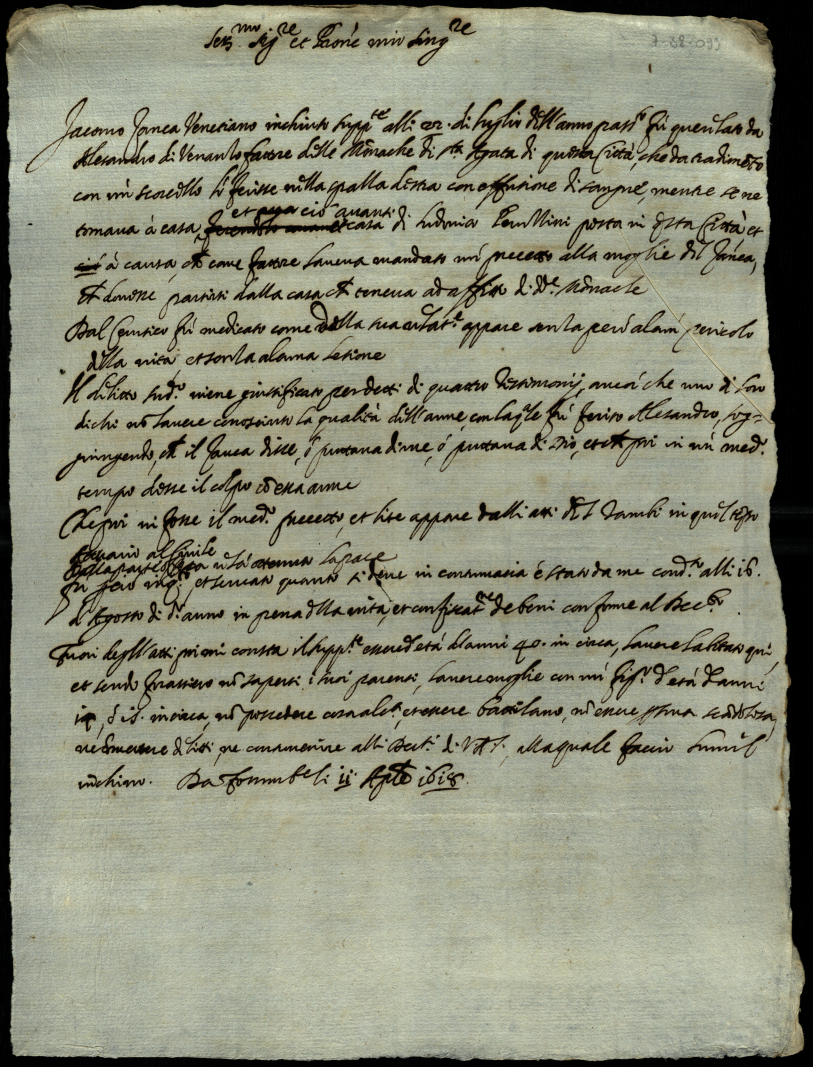 Ser.mo Sig.re et Pat.ne mio Sing.re
7-38-093
Jacomo Zanca Venetiano inchiuso supp.te alli 22. di luglio dell'anno pass.o fù querelato da
Alesandro di Venanzo fattore delle Monache di S.ta Agata di questa Città, che da tradimento
con un scorcello li ferisse nella spalla destra con effusione di sangue, mentre se ne
et era ciò avanti
tornava à casa, casa di Ludovico Paullini posta in d.ta Città et
à causa, che come fattore haveva mandato un precetto alla moglie del Zanca,
che dovesse partirsi dalla casa che teneva ad affitto di d.e Monache
Dal Cerusico fù medicato come della sua relat.e appare senza però alcun pericolo
della vita et senza alcuna lesione
Il delitto sud.o viene giustificato per detti di quattro Testimonij, ancor che uno di loro
dichi nò havere conosciuto la qualità dell'arme con la q.le fù ferito Alesandro, sog=
giungendo, che il Zanca disse, ò puttana di me, ò puttana di Dio, et che poi in un med.o
tempo desse il colpo cò essa arme
Che poi vi fosse il med.o precetto, et lite appare dalli atti del Zambi in quel tempo
notario al Civile
Dalla parte offesa n'hà ottenuto la pace
et servato quanto si deve in contumacia è stato da me cond.to alli 16.
d'Agosto di d.o anno in pena della vita, et confiscat.ne de beni conforme al Dec.to
Fuori degl'atti poi mi consta il supp.te essere d'età d'anni 40. in circa, havere habitato quì,
et sendo forastiero nò sapersi i suoi parenti, havere moglie con un fig.o d'età d'anni
ò 15. in circa, nò possedere cosa alc.a, et essere nò essere p.sona scandolosa,
nè commettere delitti, ne contravenire alli Decr.ti di V.A.S., alla quale faccio humil.e
inchino. Da Fossomb.e li ii Ap.le 1618.